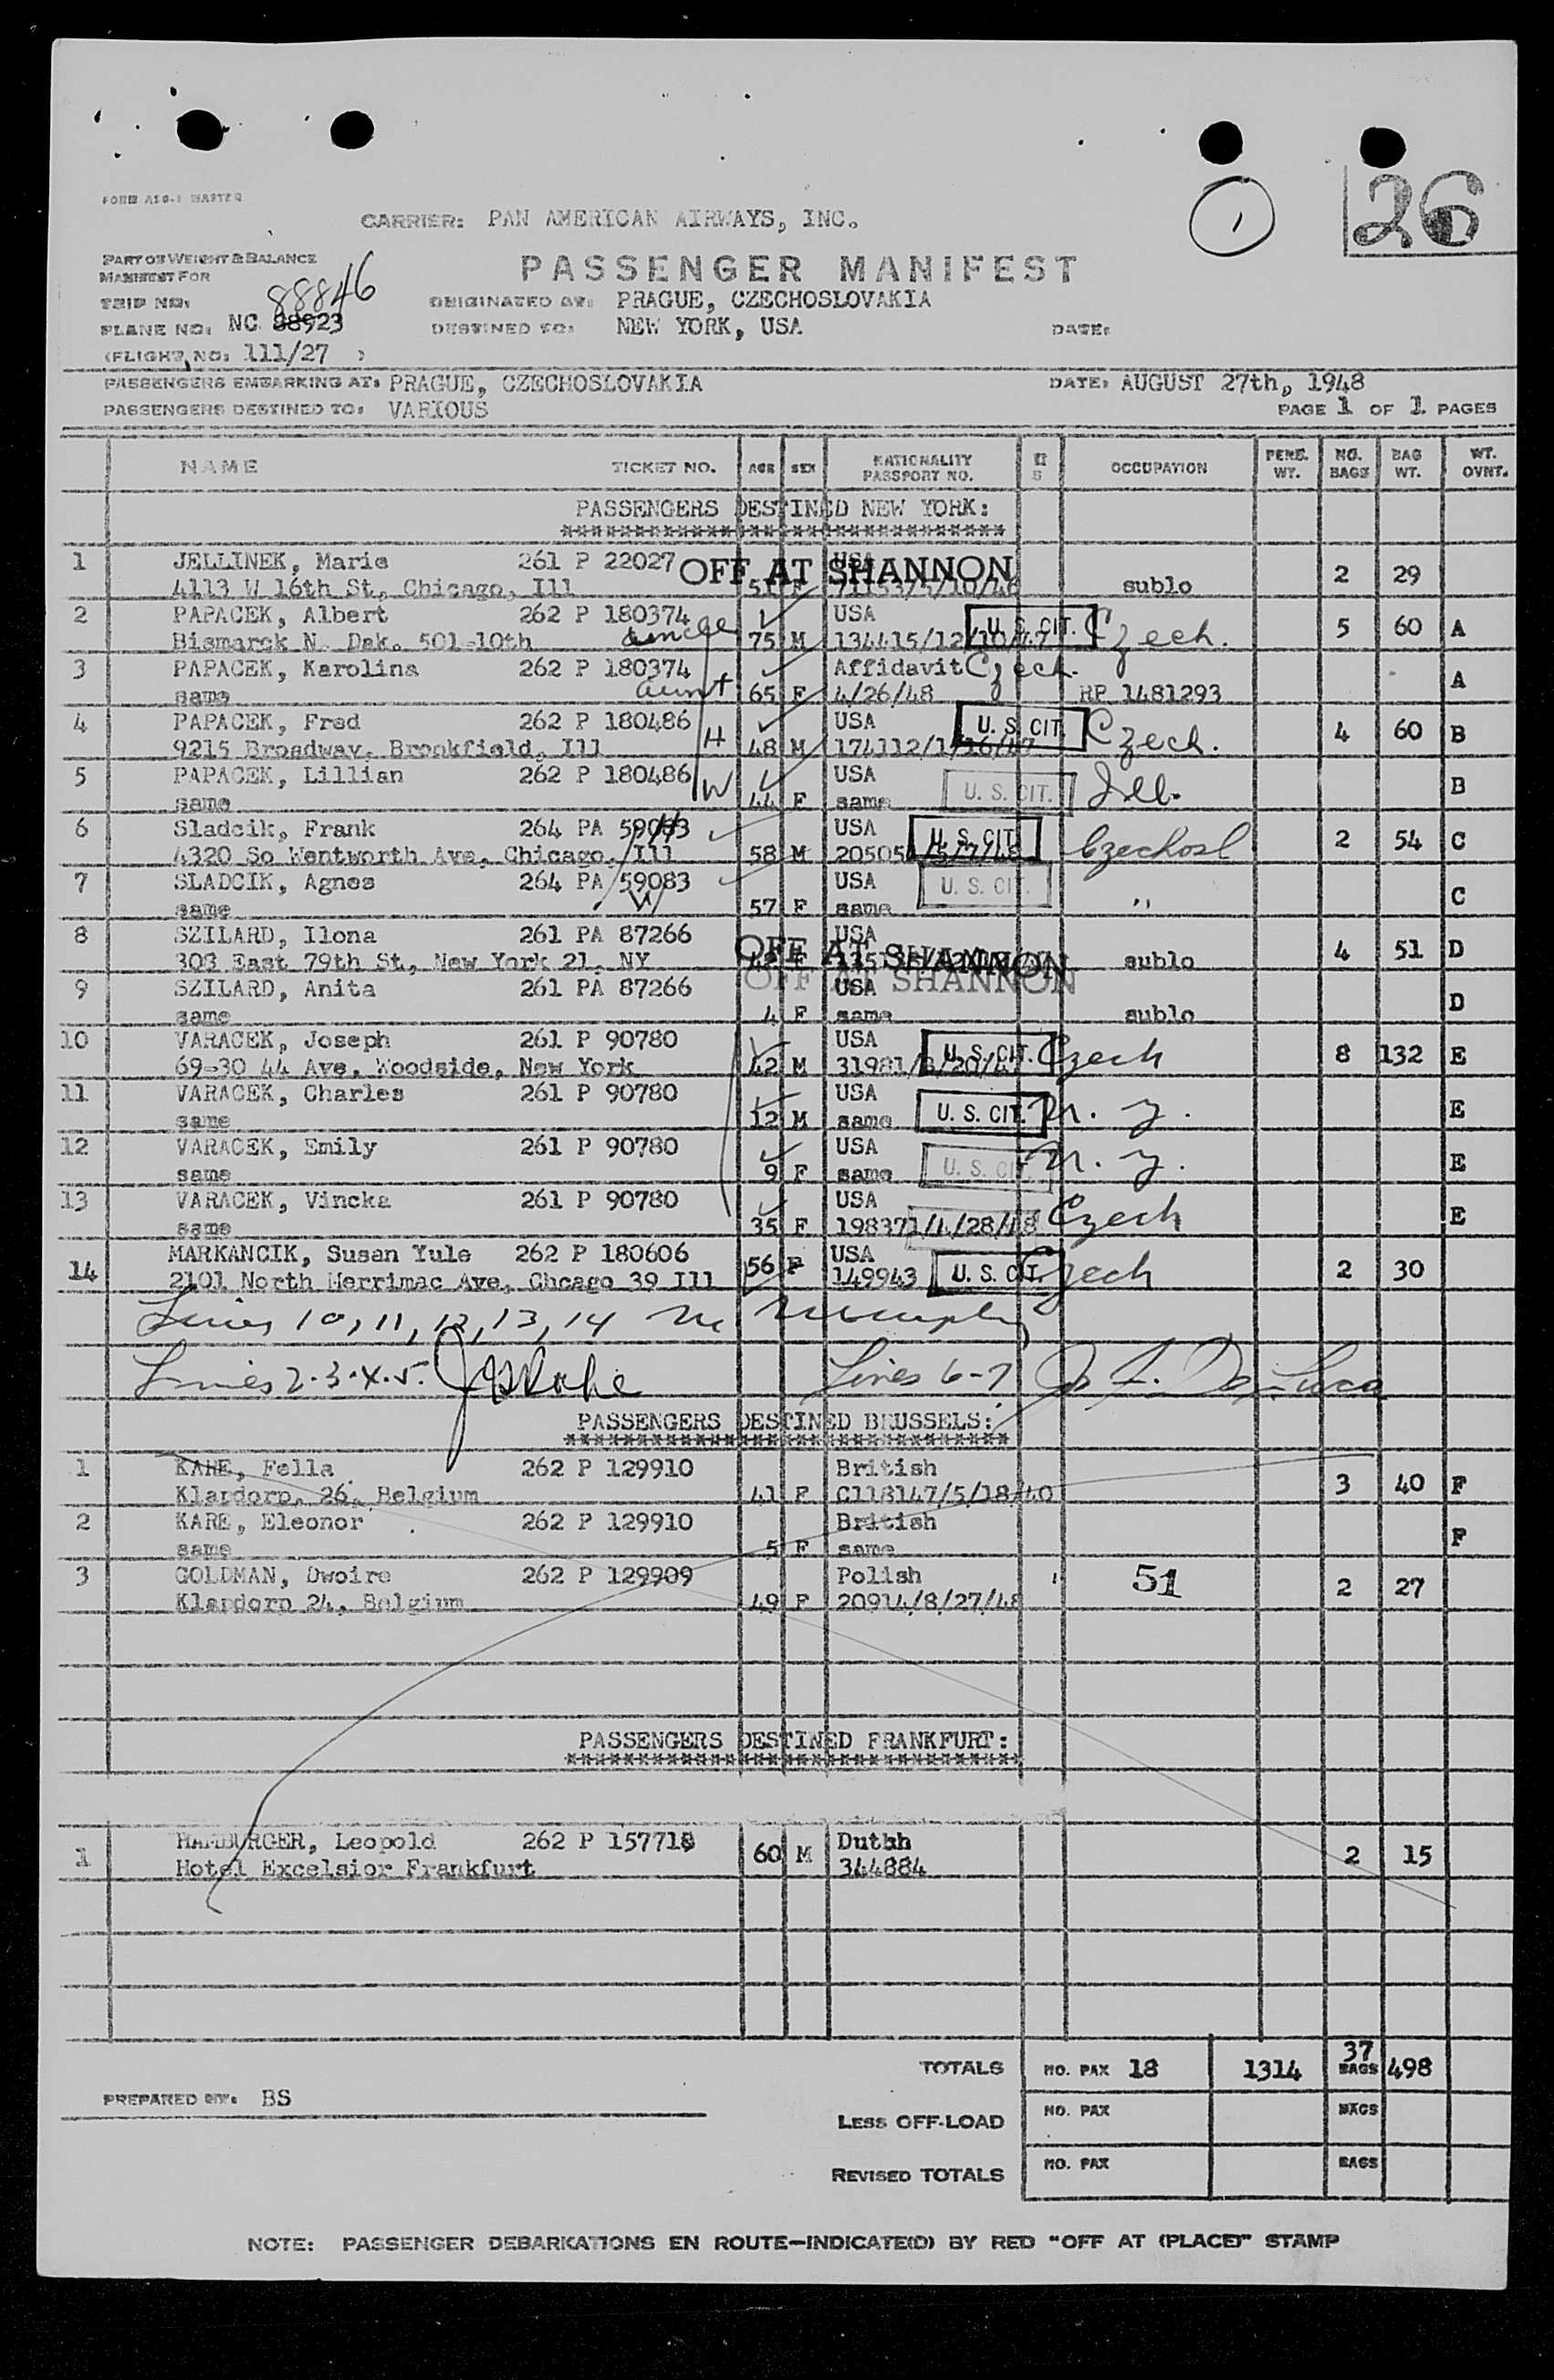 FORM ASG-1 MASTER
CARRIER: PAN AMERICAN AIRWAYS, INC.
1
26
PART OF WEIGHT & BALANCE
MANIFEST FOR
PASSENGER MANIFEST
TRIP NO: 88846
ORIGINATED AT: PRAGUE, CZECHOSLOVAKIA
PLANE NO: NC 88923
DESTINED TO: NEW YORK, USA DATE:
(FLIGHT NO: 111/27 )
PASSENGERS EMBARKING AT: PRAGUE, CZECHOSLOVAKIA DATE: AUGUST 27th, 1948
PASSENGERS DESTINED TO: VARIOUS PAGE 1 OF 1 PAGES
NAME TICKET NO. AGE SEX NATIONALITY PASSPORT NO. OCCUPATION PERS. WT. NO. BAGS BAG WT. WT. OVNT.
PASSENGERS DESTINED NEW YORK:
*******************************
1 JELLINEK, Marie 261 P 22027 OFF AT SHANNON USA 2 29
4113 W 16th St, Chicago, Ill 51 F sublo
2 PAPACEK, Albert 262 P 180374 USA U. S. CIT. Czech. 5 60 A
Bismarck N. Dak. 501-10th uncle 75 M 134415/12/10/47
3 PAPACEK, Karolina 262 P 180374 Affidavit Czech. A
same aunt 65 F 4/26/48 RP 1481293
4 PAPACEK, Fred 262 P 180486 USA U. S. CIT. Czech. 4 60 B
9215 Broadway, Brookfield, Ill H 48 M 174112/1/16/47
5 PAPACEK, Lillian 262 P 180486 USA U. S. CIT. Ill. B
same W 44 F same
6 Sladcik, Frank 264 PA 59083 H USA U. S. CIT. Czechosl 2 54 C
4320 So Wentworth Ave, Chicago, Ill 58 M
7 SLADCIK, Agnes 264 PA 59083 USA U. S. CIT. " C
same W 57 F same
8 SZILARD, Ilona 261 PA 87266 USA OFF AT SHANNON 4 51 D
303 East 79th St, New York 21, NY F sublo
OFF AT SHANNON
9 SZILARD, Anita 261 PA 87266 USA D
same 4 F same sublo
10 VARACEK, Joseph 261 P 90780 USA U. S. CIT. Czech 8 132 E
69-30 44 Ave, Woodside, New York 42 M 31981/8/20/47
11 VARACEK, Charles 261 P 90780 USA U. S. CIT. N. Y. E
same 12 M same
12 VARACEK, Emily 261 P 90780 USA U. S. CIT. N. Y. E
same 9 F same
13 VARACEK, Vincka 261 P 90780 USA Czech E
same 35 F 198371/4/28/48
14 MARKANCIK, Susan Yule 262 P 180606 56 F USA U. S. CIT. Czech 2 30
2101 North Merrimac Ave, Chcago 39 Ill 149943
Lines 10, 11, 12, 13, 14
Lines 2.3.4.5. Lines 6-7 De Luca
PASSENGERS DESTINED BRUSSELS:
*******************************
1 KARE, Fella 262 P 129910 British 3 40 F
Klapdorp, 26, Belgium 41 F C118147/5/18/40
2 KARE, Eleonor 262 P 129910 British F
same 5 F same
3 GOLDMAN, Dwoire 262 P 129909 Polish 51 2 27
Klapdorp 24, Belgium 49 F 20914/8/27/48
PASSENGERS DESTINED FRANKFURT:
*******************************
1 HAMBURGER, Leopold 262 P 157718 60 M Duthh 2 15
Hotel Excelsior Frankfurt 344884
TOTALS NO. PAX 18 1314 37 BAGS 498
PREPARED BY: BS
LESS OFF-LOAD NO. PAX BAGS
REVISED TOTALS NO. PAX BAGS
NOTE: PASSENGER DEBARKATIONS EN ROUTE—INDICATE(D) BY RED "OFF AT (PLACE)" STAMP